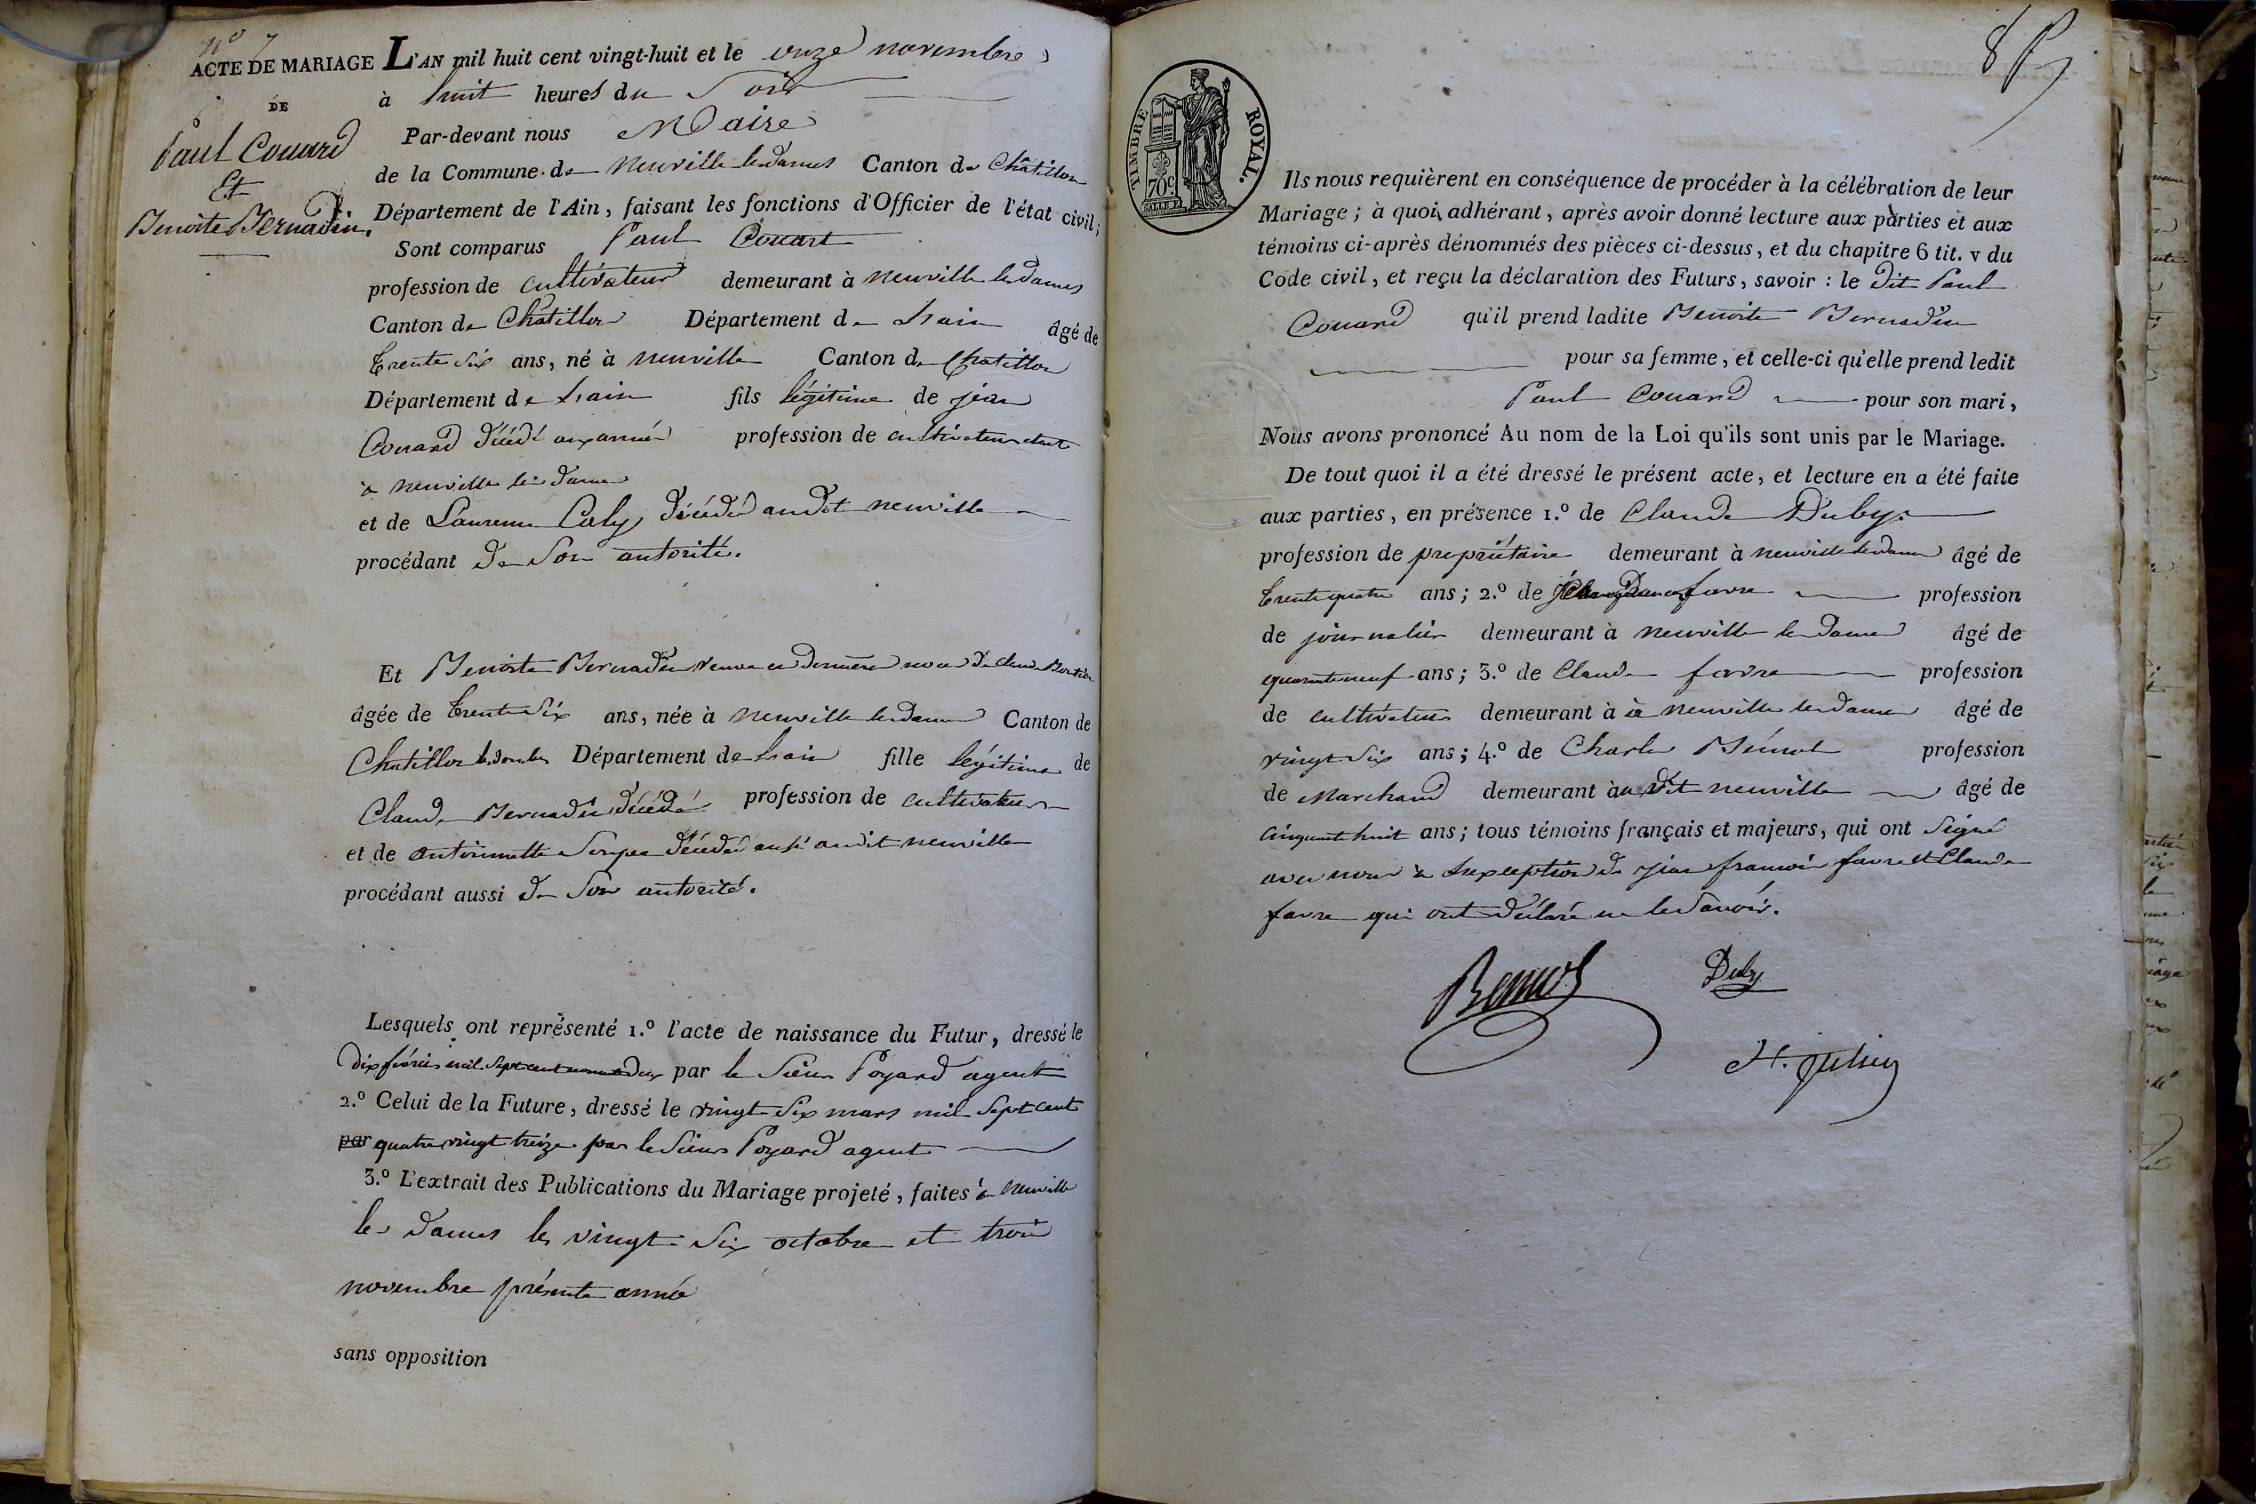 N° 7
ACTE DE MARIAGE
DE
Paul Couard
Et
Benoite Bernadin.
L'AN mil huit cent vingt-huit et le onze novembre
à huit heures du Soir
Par-devant nous Maire
de la Commune de Neuville les dames Canton de Châtillon
Département de l'Ain, faisant les fonctions d'Officier de l'état civil;
Sont comparus Paul Couart
profession de cultivateur demeurant à Neuville les dames
Canton de Chatillon Département de Lain âgé de
trente six ans, né à neuville Canton de Chatillon
Département de Lain fils légitime de jean
Couard décédé profession de cultivateur
à neuville les dames
et de Laurence Caly décédé audit neuville
procédant de Son autorité.
Et Benoite Bernadin veuve en dernière noce de Claude
âgée de trente Six ans, née à neuville les dames Canton de
Chatillon Département de Lain fille légitime de
Claude Bernadin décédé profession de cultivateur
et de antoinette décédé aussi audit neuville
procédant aussi de Son autorité.
Lesquels ont représenté 1.° l'acte de naissance du Futur, dressé le
dix février mil Sept cent nonante deux par le Sieur Poyard agent
2.° Celui de la Future, dressé le vingt Six mars mil Sept cent
par quatre vingt treize par le Sieur Poyard agent
3.° L'extrait des Publications du Mariage projeté, faites à Neuville
les dames les vingt Six octobre et trois
novembre présente année
sans opposition
8
TIMBRE ROYAL.
70c.
Ils nous requièrent en conséquence de procéder à la célébration de leur
Mariage; à quoi adhérant, après avoir donné lecture aux parties et aux
témoins ci-après dénommés des pièces ci-dessus, et du chapitre 6 tit. v du
Code civil, et reçu la déclaration des Futurs, savoir : le dit Paul
Couard qu'il prend ladite Benoite Bernadin
pour sa femme, et celle-ci qu'elle prend ledit
Paul Couard pour son mari,
Nous avons prononcé Au nom de la Loi qu'ils sont unis par le Mariage.
De tout quoi il a été dressé le présent acte, et lecture en a été faite
aux parties, en présence 1.° de Claude Duby
profession de propriétaire demeurant à neuville les dames âgé de
trente quatre ans; 2.° de favre profession
de journalier demeurant à neuville les dames âgé de
quarante neuf ans; 3.° de Claude favre profession
de cultivateur demeurant à à neuville les dames âgé de
vingt Six ans; 4.° de Charles profession
de Marchand demeurant au dit neuville âgé de
cinquant huit ans; tous témoins français et majeurs, qui ont Signé
avec nous à Lexception de jean francois favre et Claude
favre qui ont déclaré ne le Savoir.
Duby